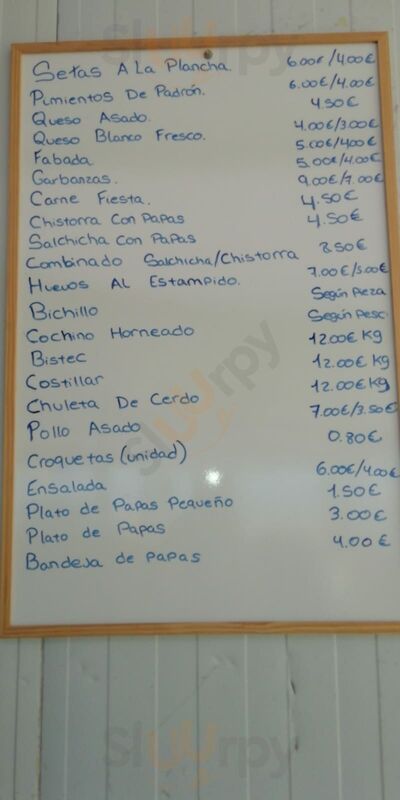 Setas A La Plancha. 6.00€/4.00€
Pimientos De Padrón. 6.00€/4.00€
Queso Asado. 4.50€
Queso Blanco Fresco. 4.00€/3.00€
Fabada 5.00€/4.00€
Garbanzas. 5.00€/4.00€
Carne Fiesta. 9.00€/7.00€
Chistorra Con Papas 4.50€
Salchicha Con Papas 4.50€
Combinado Salchicha/Chistorra 8.50€
Huevos AL Estampido. 7.00€/5.00€
Bichillo Según Pieza
Cochino Horneado Según Peso.
Bistec 12.00€ Kg
Costillar 12.00€ Kg
Chuleta De Cerdo 12.00€ Kg
Pollo Asado 7.00€/3.50€
Croquetas (unidad) 0.80€
Ensalada 6.00€/4.00€
Plato de Papas Pequeño 1.50€
Plato de Papas 3.00€
Bandeja de Papas 4.00€
Sluurpy
Sluurpy
Sluurpy